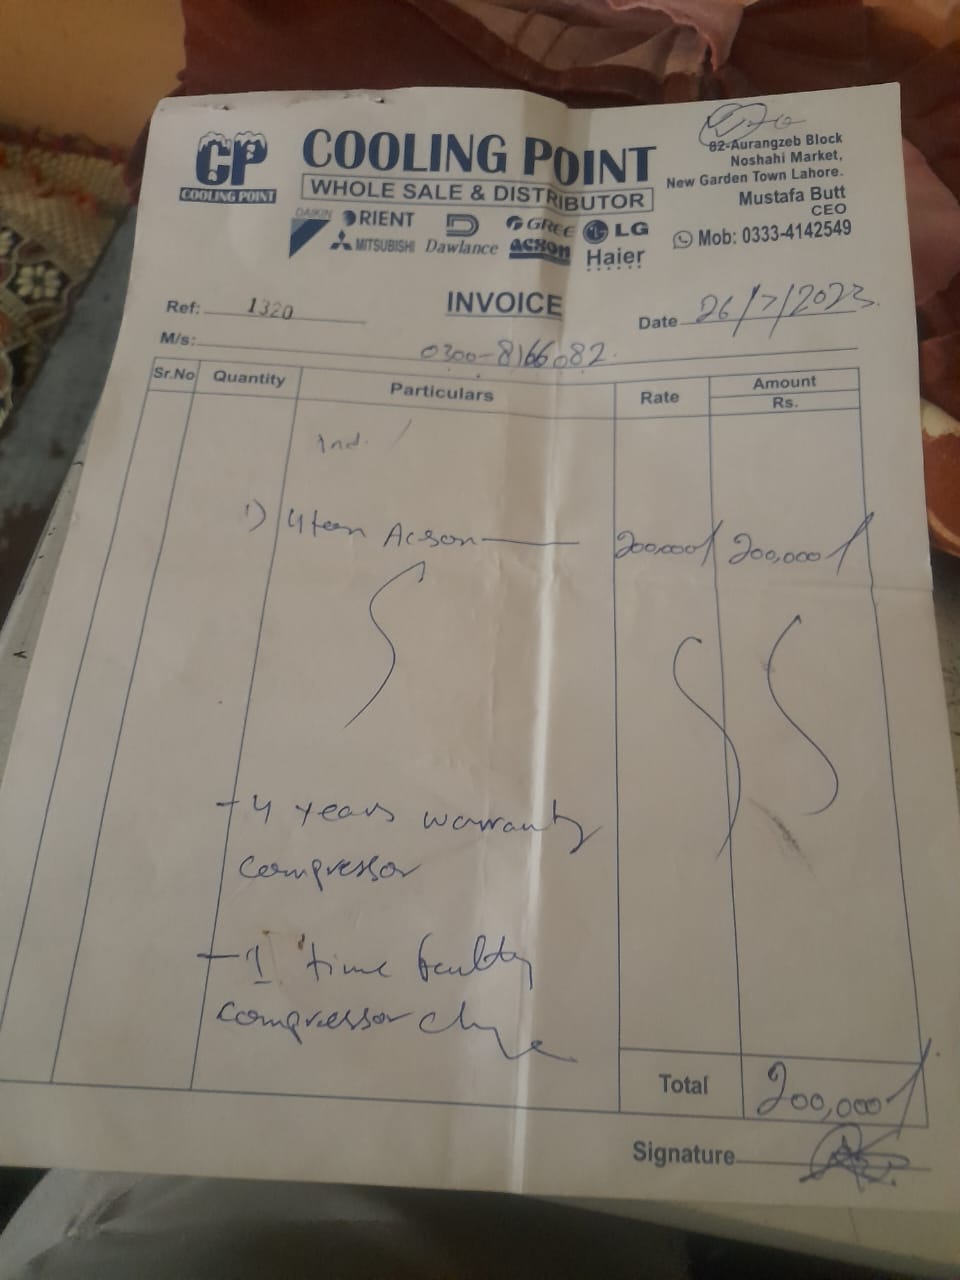 CP
COOLING POINT
COOLING POINT
WHOLE SALE & DISTRIBUTOR
DAIKIN ORIENT Dawlance GREE LG
MITSUBISHI acson Haier
82-Aurangzeb Block
Noshahi Market,
New Garden Town Lahore.
Mustafa Butt
CEO
Mob: 0333-4142549
Ref: 1320
INVOICE
Date 26/7/2023.
M/s: 0300-8166082.
Sr.No Quantity Particulars Rate Amount
Rs.
Ind.
1) 4ton Acson 200,000/ 200,000/
- 4 years warranty
compressor
- 1 time faulty
compressor
Total 200,000/
Signature